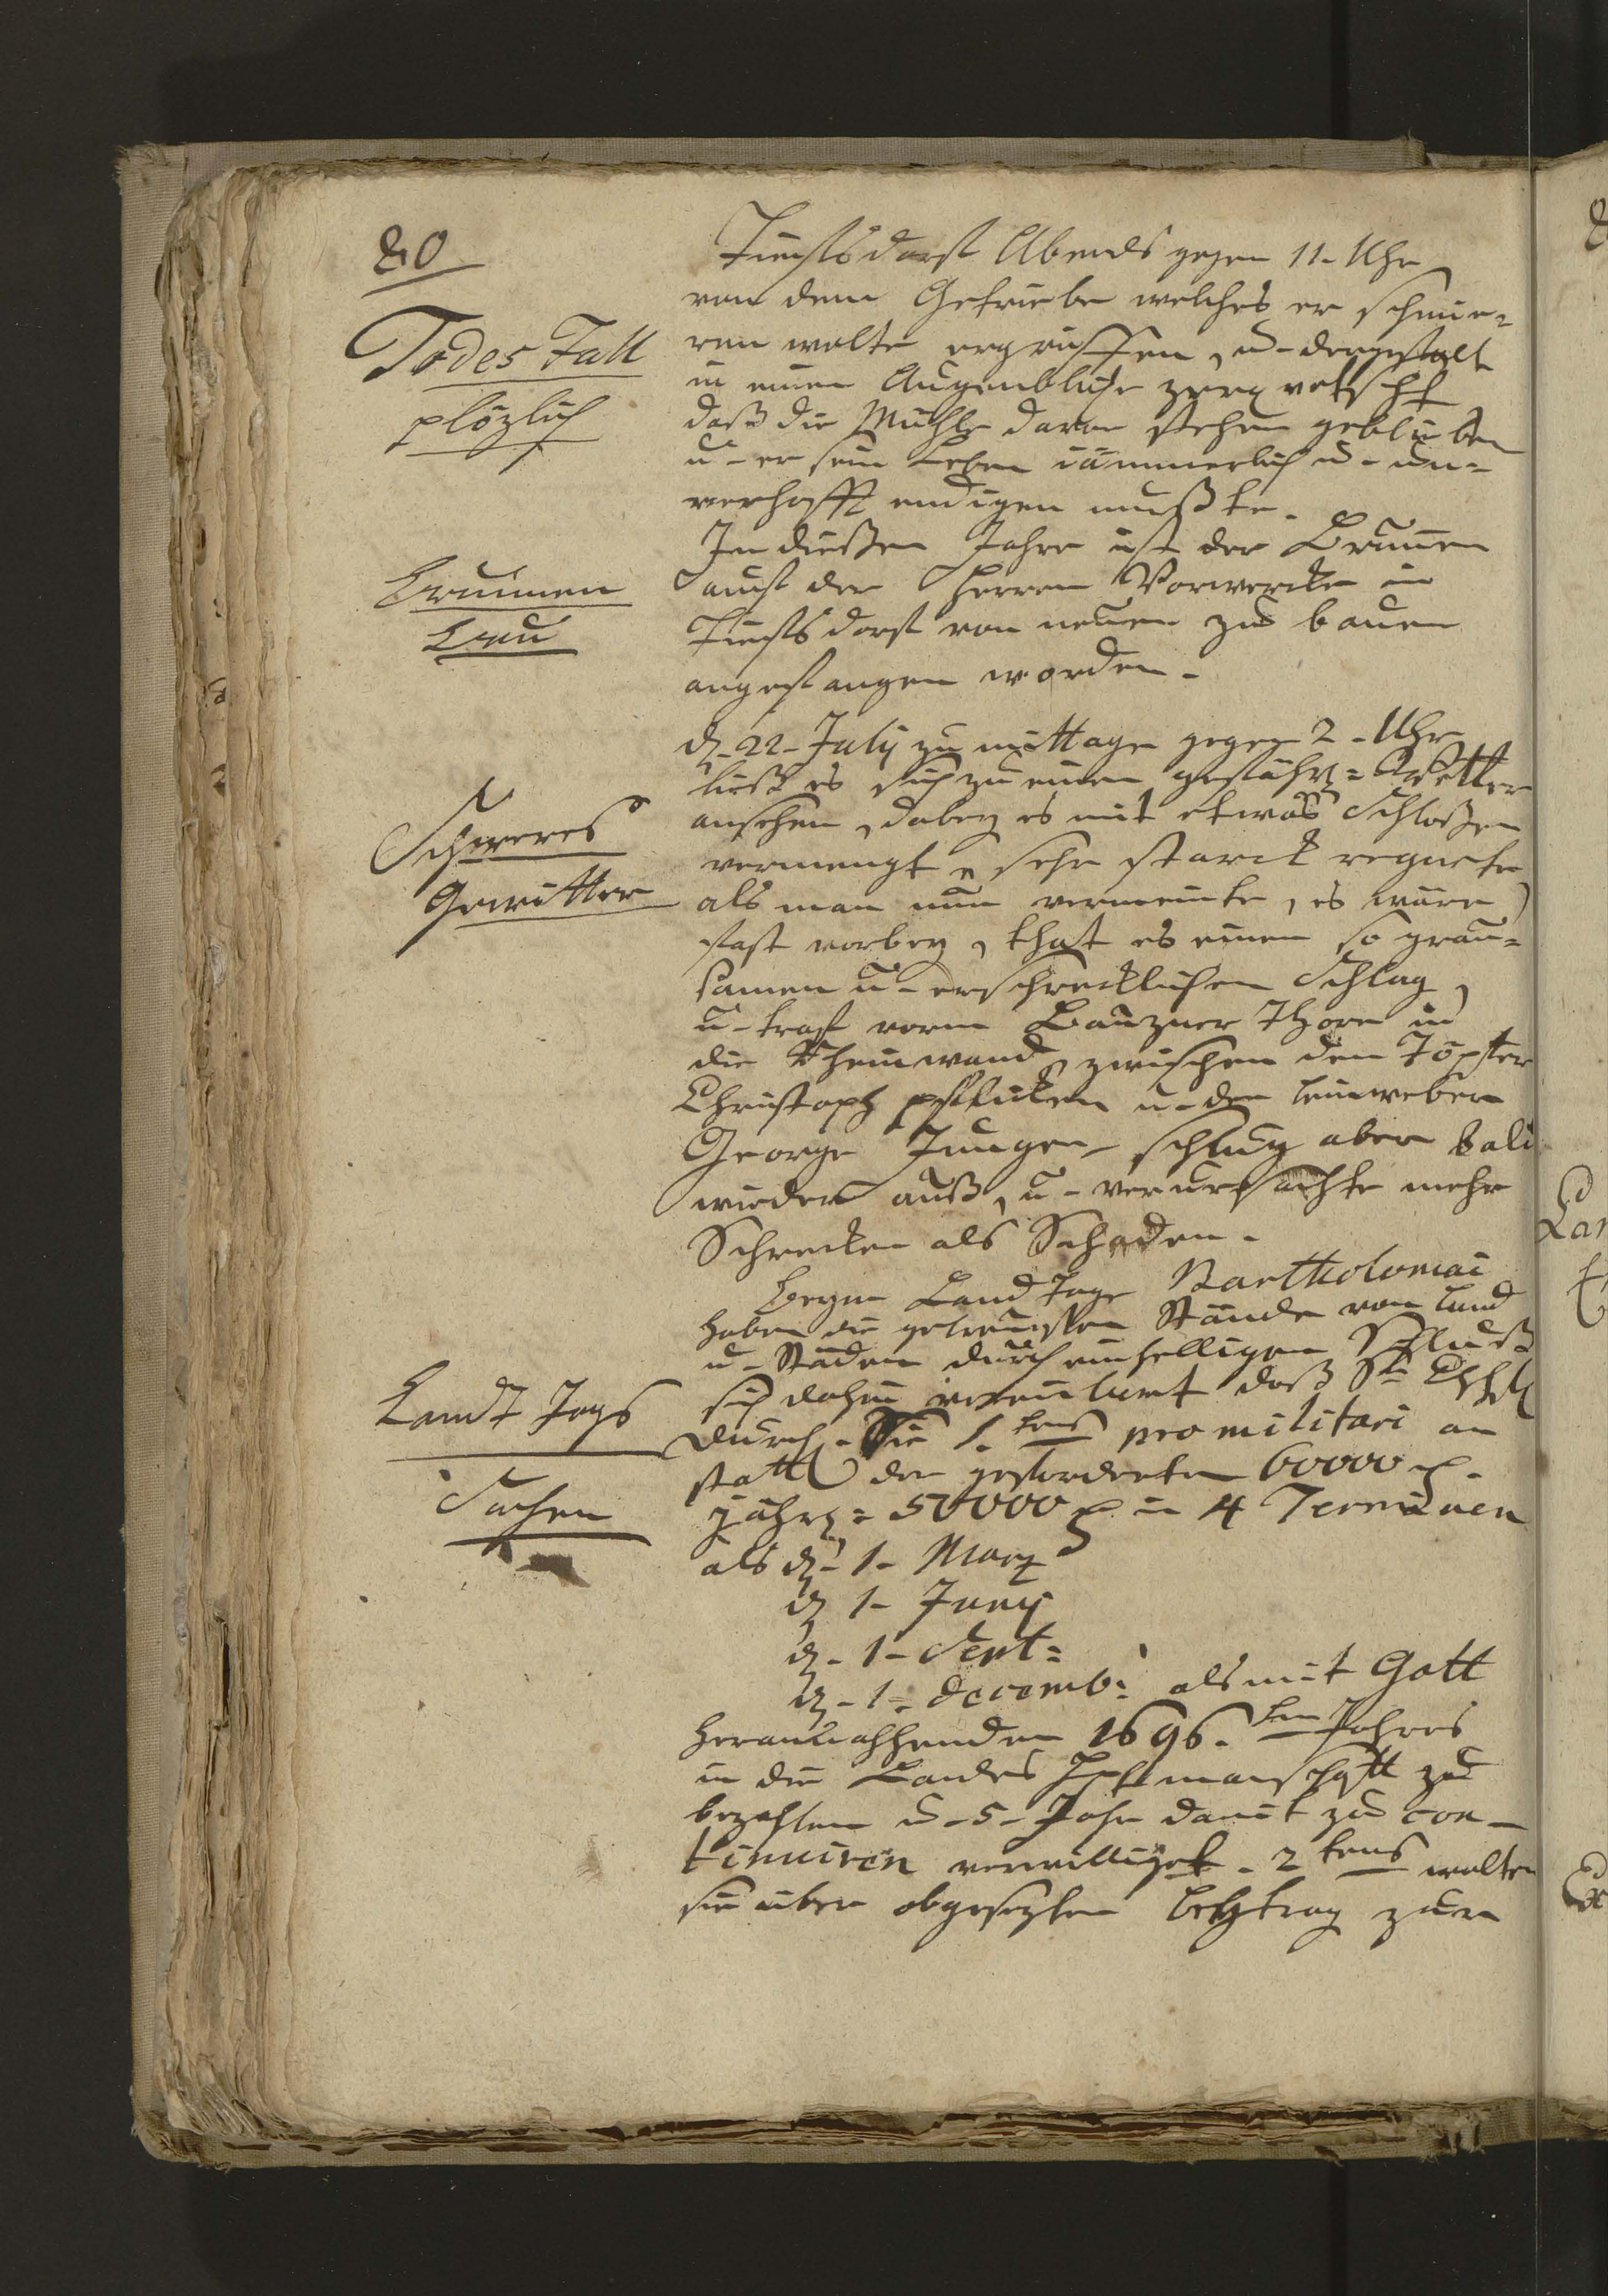 80
Todes Fall
plözlich
Tiefsdorf Abends gegen 11. Uhr
von dem Getriebe welches er schmie=
ren wolte ergriffen, u. dergestalt
in einen Augenblicke zerqvetscht
daß die Mühle davon stehen geblieben
u. er sein Leben jämmerlich u. un=
verhofft endigen mußte.
Brunnen
Bau
In dießen Jahre ist der Brunnen
auf der Herren Vorwercke in
Tiefsdorf von neuen zu bauen
angefangen worden.
Schweres
Gewitter
d. 22. July zu mittage gegen 2. Uhr
ließ es sich zu einen gefährl= Wetter
ansehen, dabey es mit etwas Schloßen
vermengt, sehr starck regnete
als man nun vermeinte, es wäre
fast vorbey, that es einen so grau=
samen u. erschrecklichen Schlag,
u. traf vorm Bauzner Thore in
die wand, zwischen den Töpfer
Christoph u. den leinweber
George Jungen, schlug aber bald
wieder auß, u. verursachte mehr
Schrecken als Schaden.
Landt Tags
Sachen
Beym Land Tage Bartholomäi
haben die getreuesten Stände von Land
u. Städen durch einhelligen Schluß
sich dahin vereinbaret daß Sr.
Durchl. Sie 1. tens pro militari an
statt der geforderten 60000
jährl= 50000 in 4 Terminen
als d. 1. Marz
d. 1. Juny
d. 1. Sept=
d. 1. decemb: als mit Gott
herannahenden 1696. ten Jahres
in die Landes Hptmanschafft zu
bezahlen u. 5. Jahr damit zu con=
tinuiren verwilliget. 2 tens wolten
sie über obgesezten beytrag zum